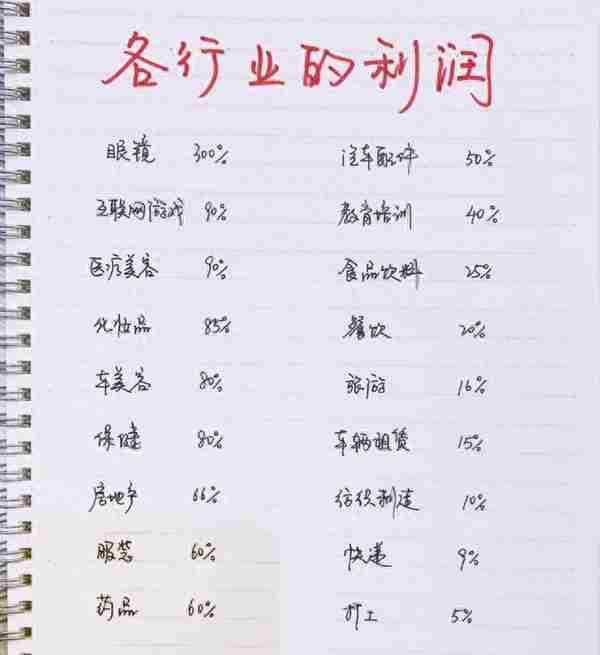 各行业的利润
眼镜 300% 汽车配件 50%
互联网游戏 90% 教育培训 40%
医疗美容 90% 食品饮料 25%
化妆品 85% 餐饮 20%
车美容 80% 旅游 16%
保健 80% 车辆租赁 15%
房地产 66% 纺织制造 10%
服装 60% 快递 9%
药品 60% 打工 5%